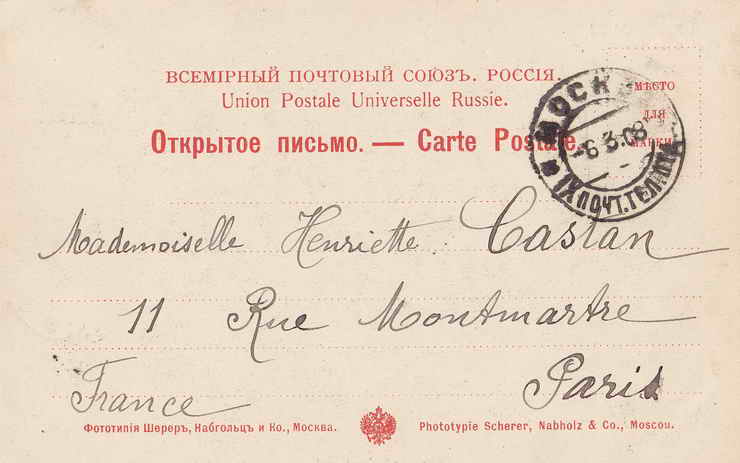 ВСЕМІРНЫЙ ПОЧТОВЫЙ СОЮЗЪ. РОССІЯ.
Union Postale Universelle Russie.
Открытое письмо. — Carte Postale.
МѢСТО
ДЛЯ
МАРКИ
МОСК
6.3.08
IX ПОЧТ. ТЕЛ.
Mademoiselle Henriette Castan
11 Rue Montmartre
Paris
France
Фототипія Шереръ, Набгольцъ и Ко., Москва.
Phototypie Scherer, Nabholz & Co., Moscou.